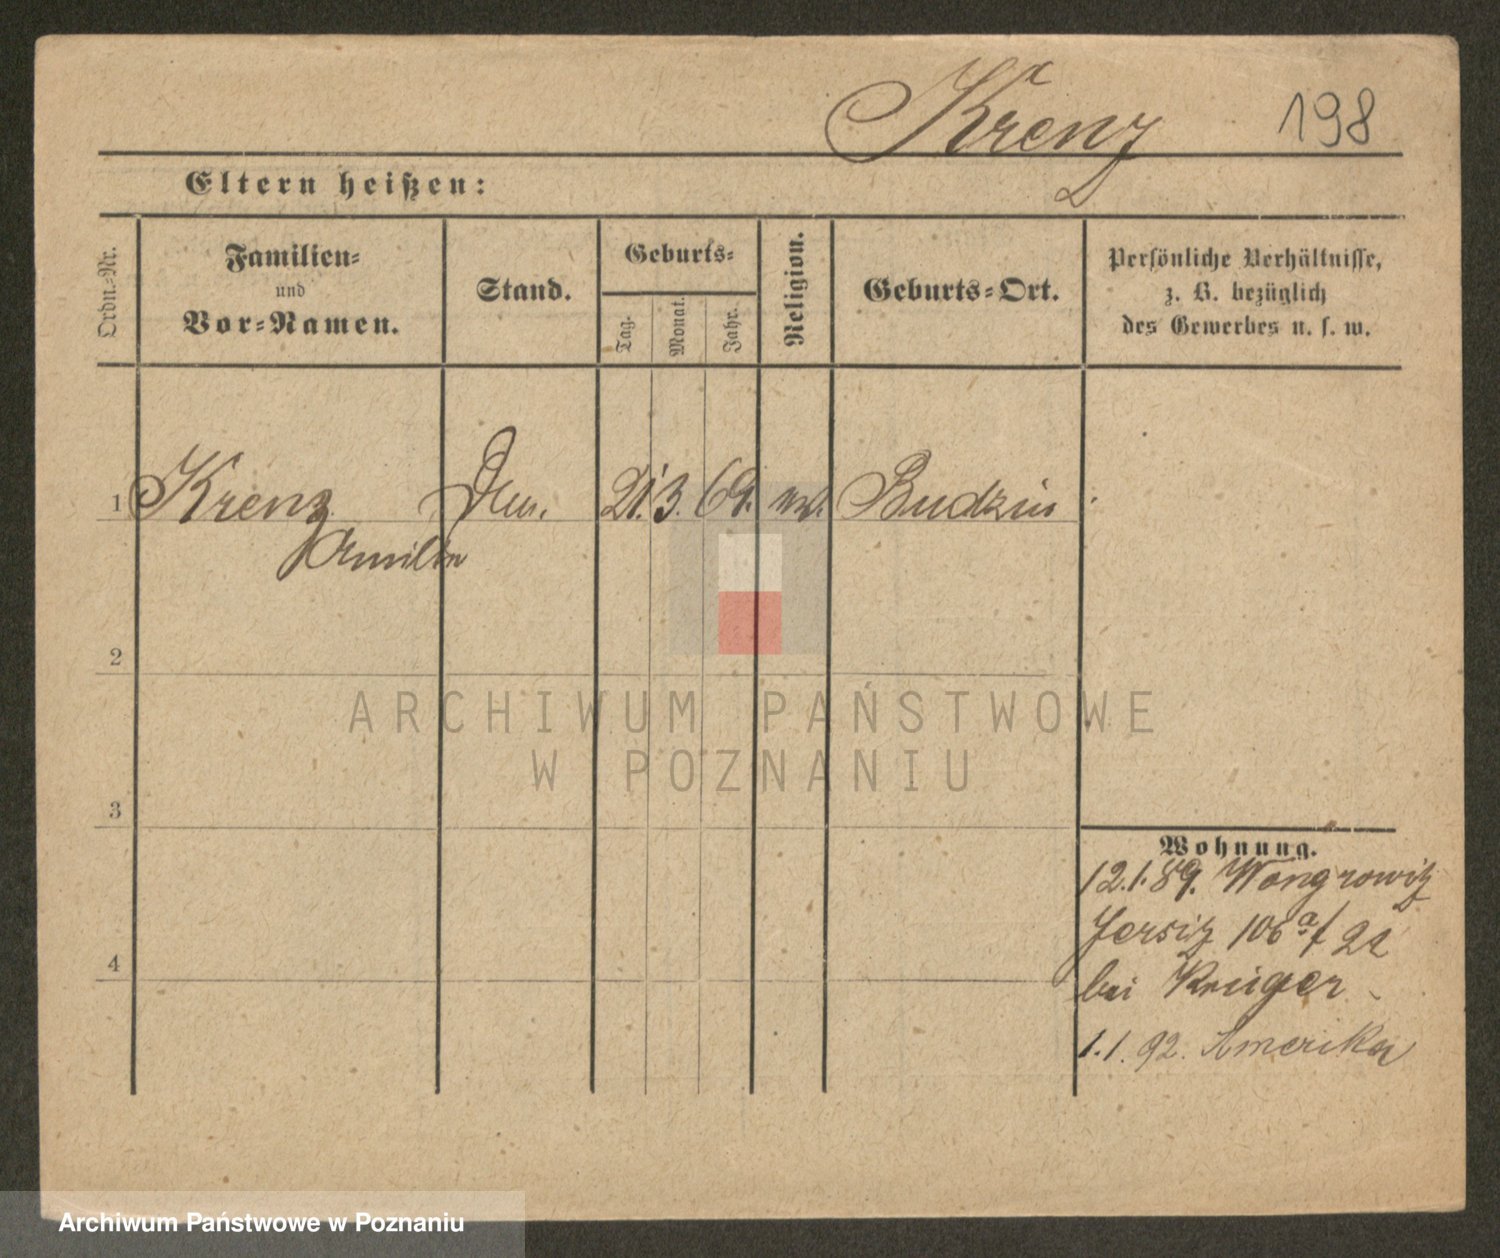 Krenz 198
Eltern heißen:
Ordn.-Nr.
Familien-
und
Vor-Namen.
Stand.
Geburts-
Tag.
Monat.
Jahr.
Religion.
Geburts-Ort.
Persönliche Verhältnisse,
z. B. bezüglich
des Gewerbes u. s. w.
1 Krenz 21. 3. 69. Budzin
2
ARCHIWUM PAŃSTWOWE
W POZNANIU
3
Wohnung.
12.1.89. Wongrowitz
Jersitz 106a/
4
bei Krüger
1.1.92. Amerika
Archiwum Państwowe w Poznaniu